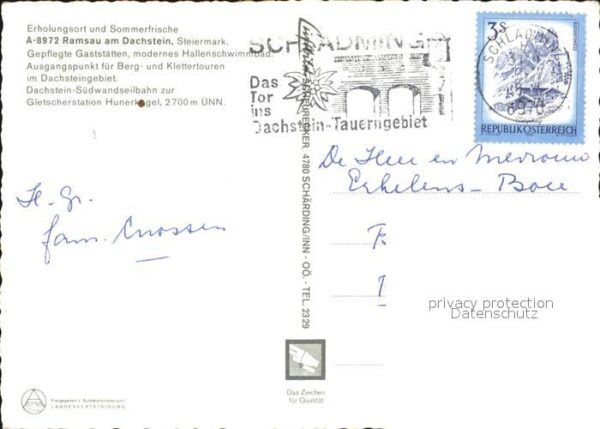 Erholungsort und Sommerfrische
A-8972 Ramsau am Dachstein, Steiermark.
Gepflegte Gaststätten, modernes Hallenschwimmbad.
Ausgangspunkt für Berg- und Klettertouren
im Dachsteingebiet.
Dachstein-Südwandseilbahn zur
Gletscherstation Hunerkogel, 2700 m ÜNN.
H. Gr.
fam. Cnossen
Freigegeben v. Bundesministerium f.
LANDESVERTEIDIGUNG
4780 SCHÄRDING/INN - OÖ. - TEL. 2329
Das Zeichen
für Qualität
SCHLADMING
Das
Tor
ins
Dachstein-Tauerngebiet
3S
SCHLADMING
8970
REPUBLIK ÖSTERREICH
De Heer en Mevrouw
Erkelens-Boer
privacy protection
Datenschutz